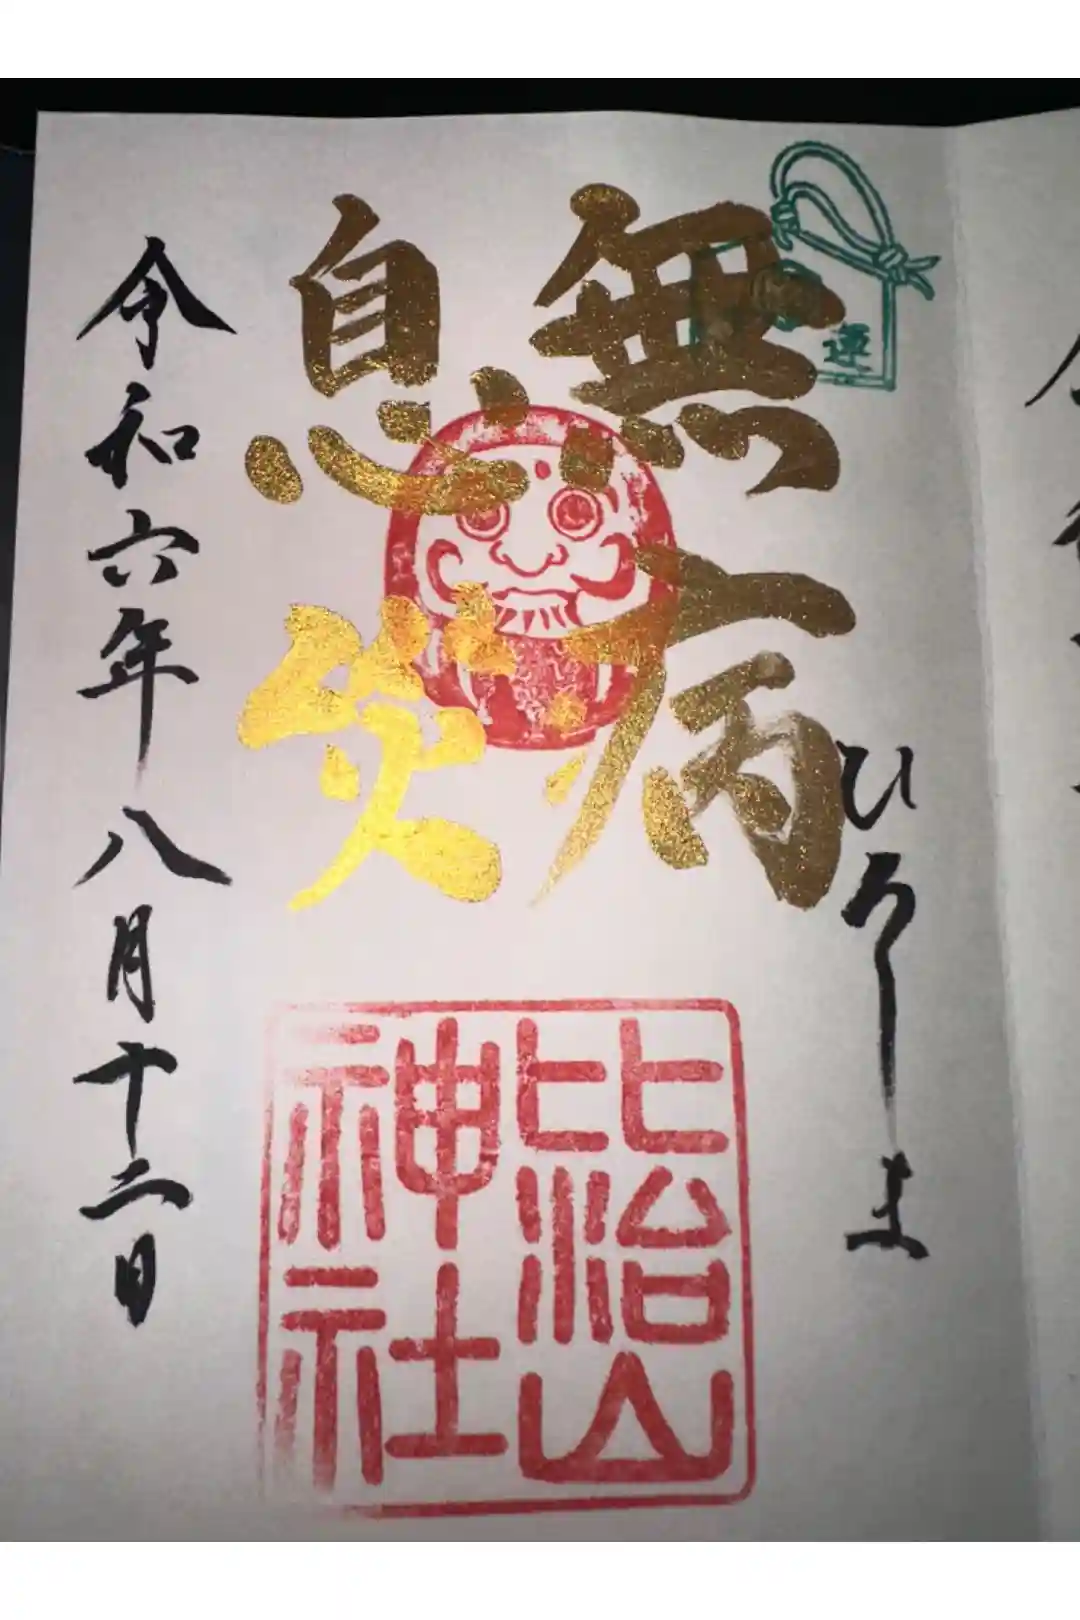 ひろしま
無病
息災
比治山
神社
運
令和六年八月十二日